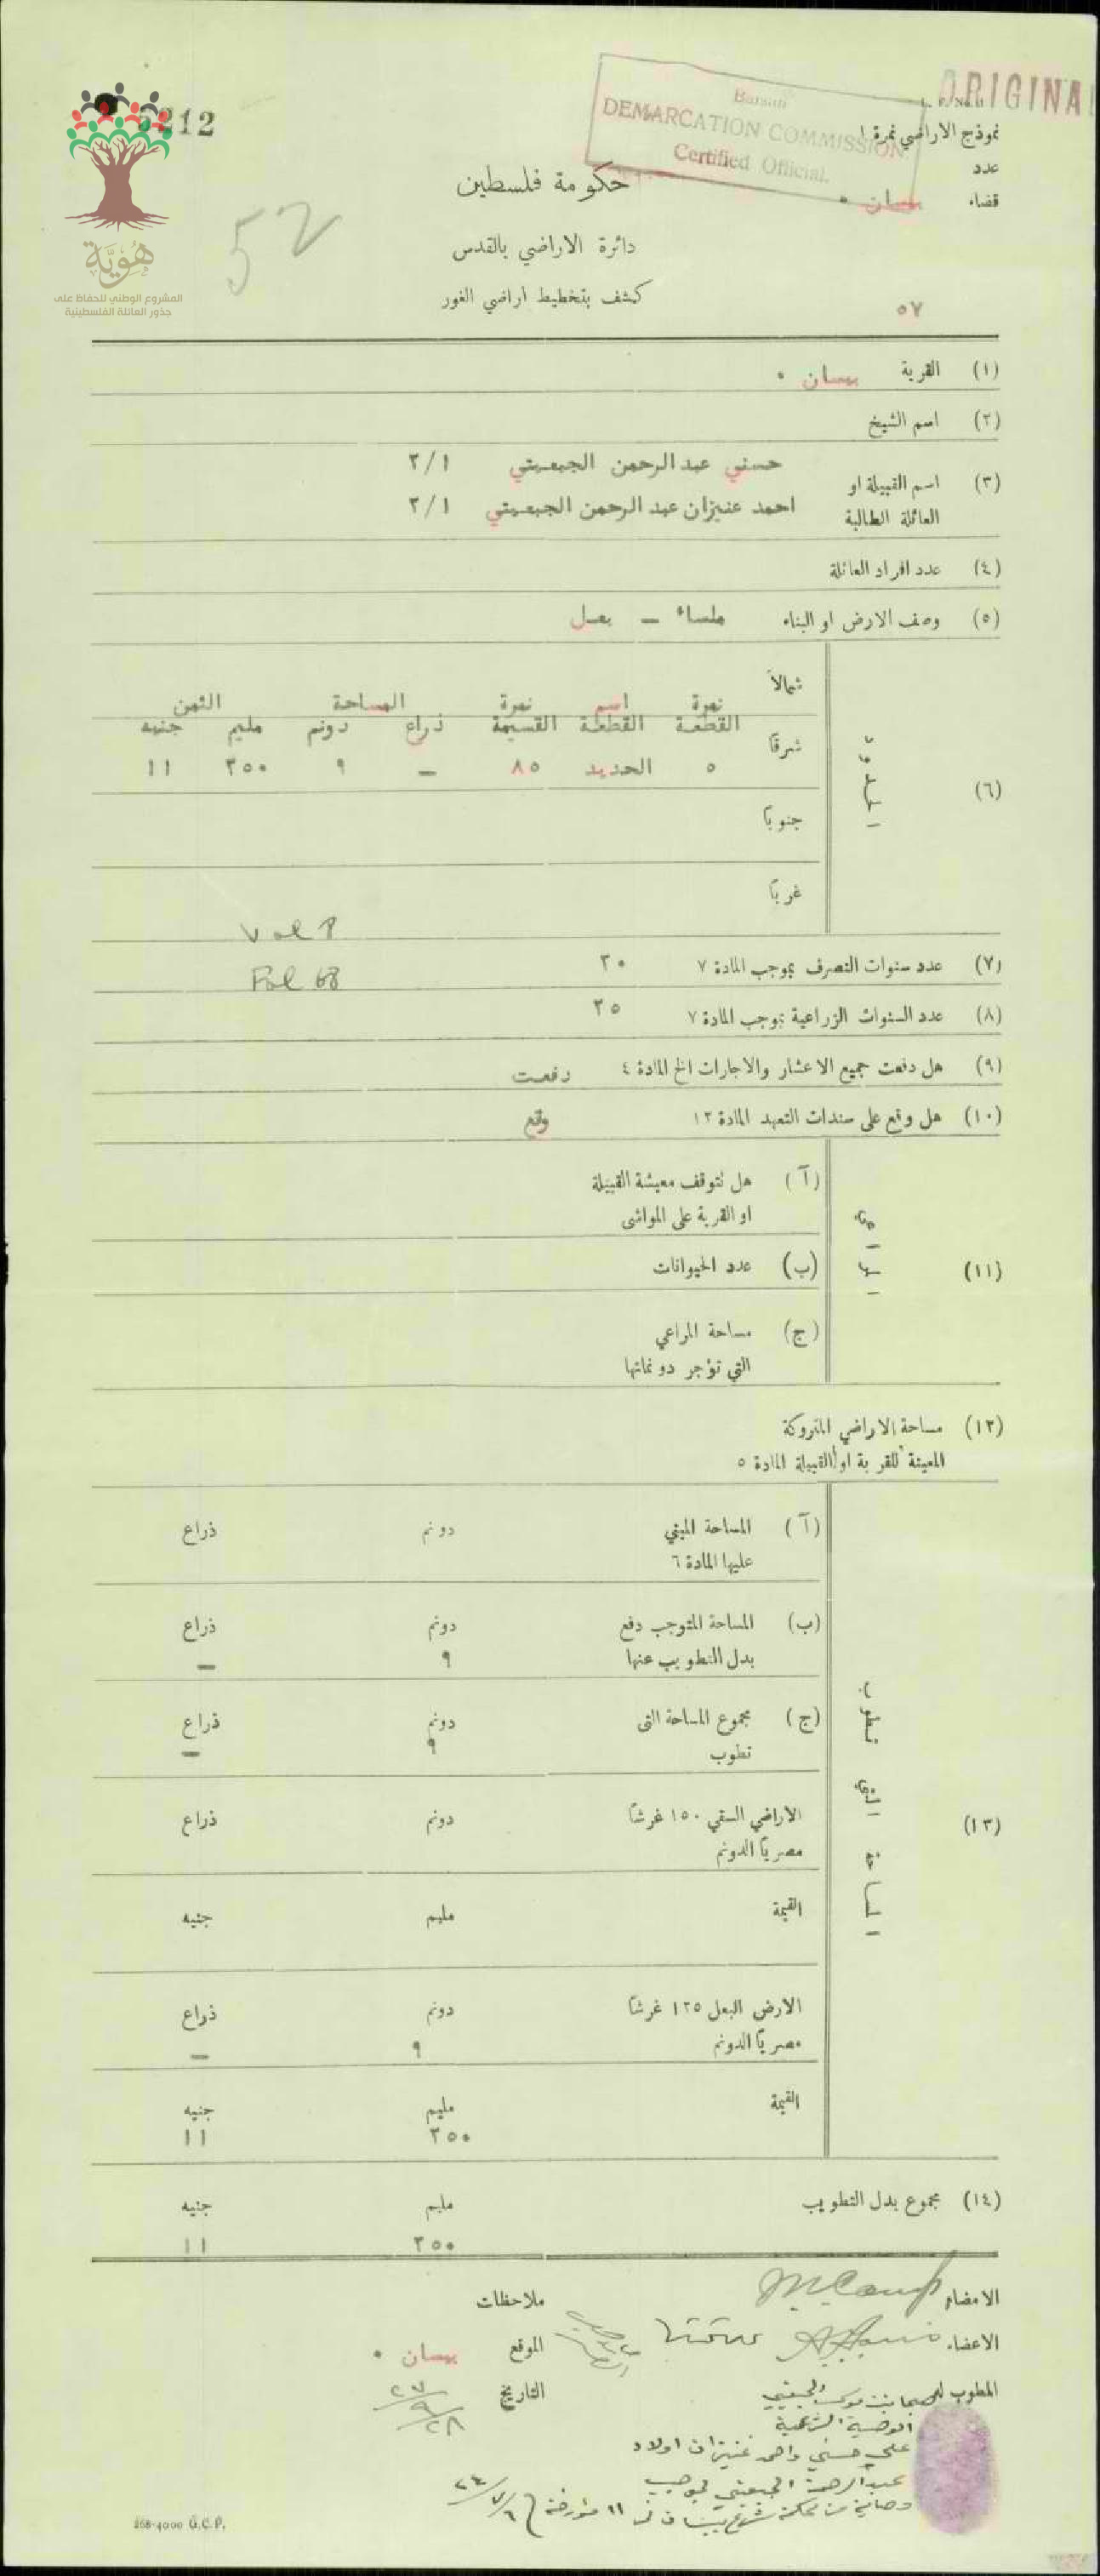 ORIGINAL
L. F. No. 1
نموذج الاراضي نمرة ١
عدد
قضاء بيسان .
Baisan
DEMARCATION COMMISSION
Certified Official.
5212
52
حكومة فلسطين
دائرة الاراضي بالقدس
كشف بتخطيط اراضي الغور
٥٧
هُويَّة
المشروع الوطني للحفاظ على
جذور العائلة الفلسطينية
(١) القرية بيسان .
(٢) اسم الشيخ
(٣) اسم القبيلة او العائلة الطالبة
حسني عبد الرحمن الجبعيتي ٢/١
احمد عنيزان عبد الرحمن الجبعيتي ٢/١
(٤) عدد افراد العائلة
(٥) وصف الارض او البناء ملساء - بعل
(٦) الحدود
شمالاً
نمرة القطعة اسم القطعة نمرة القسيمة المساحة الثمن
ذراع دونم مليم جنيه
شرقاً
٥ الحديد ٨٥ — ٩ ٢٥٠ ١١
جنوباً
غرباً
Vol 8
Fol 68
(٧) عدد سنوات التصرف بموجب المادة ٧ ٢٠
(٨) عدد السنوات الزراعية بموجب المادة ٧ ٢٥
(٩) هل دفعت جميع الاعشار والاجارات الخ المادة ٤ دفعت
(١٠) هل وقع على سندات التعهد المادة ١٢ وقع
(١١) المراعي
(آ) هل تتوقف معيشة القبيلة
او القرية على المواشي
(ب) عدد الحيوانات
(ج) مساحة المراعي
التي تؤجر دونماتها
(١٢) مساحة الاراضي المتروكة
المعينة للقرية او القبيلة المادة ٥
(١٣) المساحة التي تطوب
(آ) المساحة المبني دونم ذراع
عليها المادة ٦
(ب) المساحة المتوجب دفع دونم ذراع
بدل التطويب عنها ٩ —
(ج) مجموع المساحة التي دونم ذراع
تطوب ٩ —
الاراضي السقي ١٥٠ غرشاً دونم ذراع
مصرياً الدونم
القيمة مليم جنيه
الارض البعل ١٢٥ غرشاً دونم ذراع
مصرياً الدونم ٩ —
القيمة مليم جنيه
٢٥٠ ١١
(١٤) مجموع بدل التطويب مليم جنيه
٢٥٠ ١١
الامضاء
ملاحظات
الاعضاء
الموقع بيسان .
المطوب له
التاريخ ٢٧/٩/٢٨
الوصية الشرعية
على حسني واحمد عنيزان اولاد
عبد الرحمن الجبعيتي بموجب
268-4000 G.C.P.